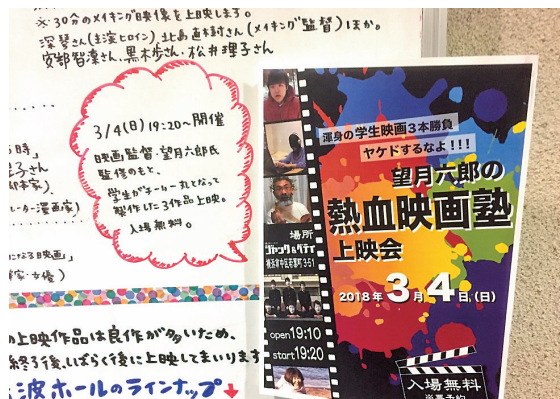 ※30分のメイキング映像を上映します。
深琴さん(主演ヒロイン)、北島直樹さん(メイキング監督)ほか。
安部智凛さん、黒木歩さん、松井理子さん
3/4(日)19:20～開催
映画監督・望月六郎氏
監修のもと、
学生がチーム一丸となって
製作した3作品上映。
入場無料。
時」
さん
家)
レーター・漫画家)
になる映画」
家・女優)
の上映作品は良作が多いため、
終了後、しばらく後に上映してまいります
波ホールのラインナップ↓
渾身の学生映画3本勝負
ヤケドするなよ!!!
望月六郎の
熱血映画塾
上映会
場所
ジャック&ベティ
横浜市中区若葉町3-51
2018年3月4日(日)
open19:10
start19:20
入場無料